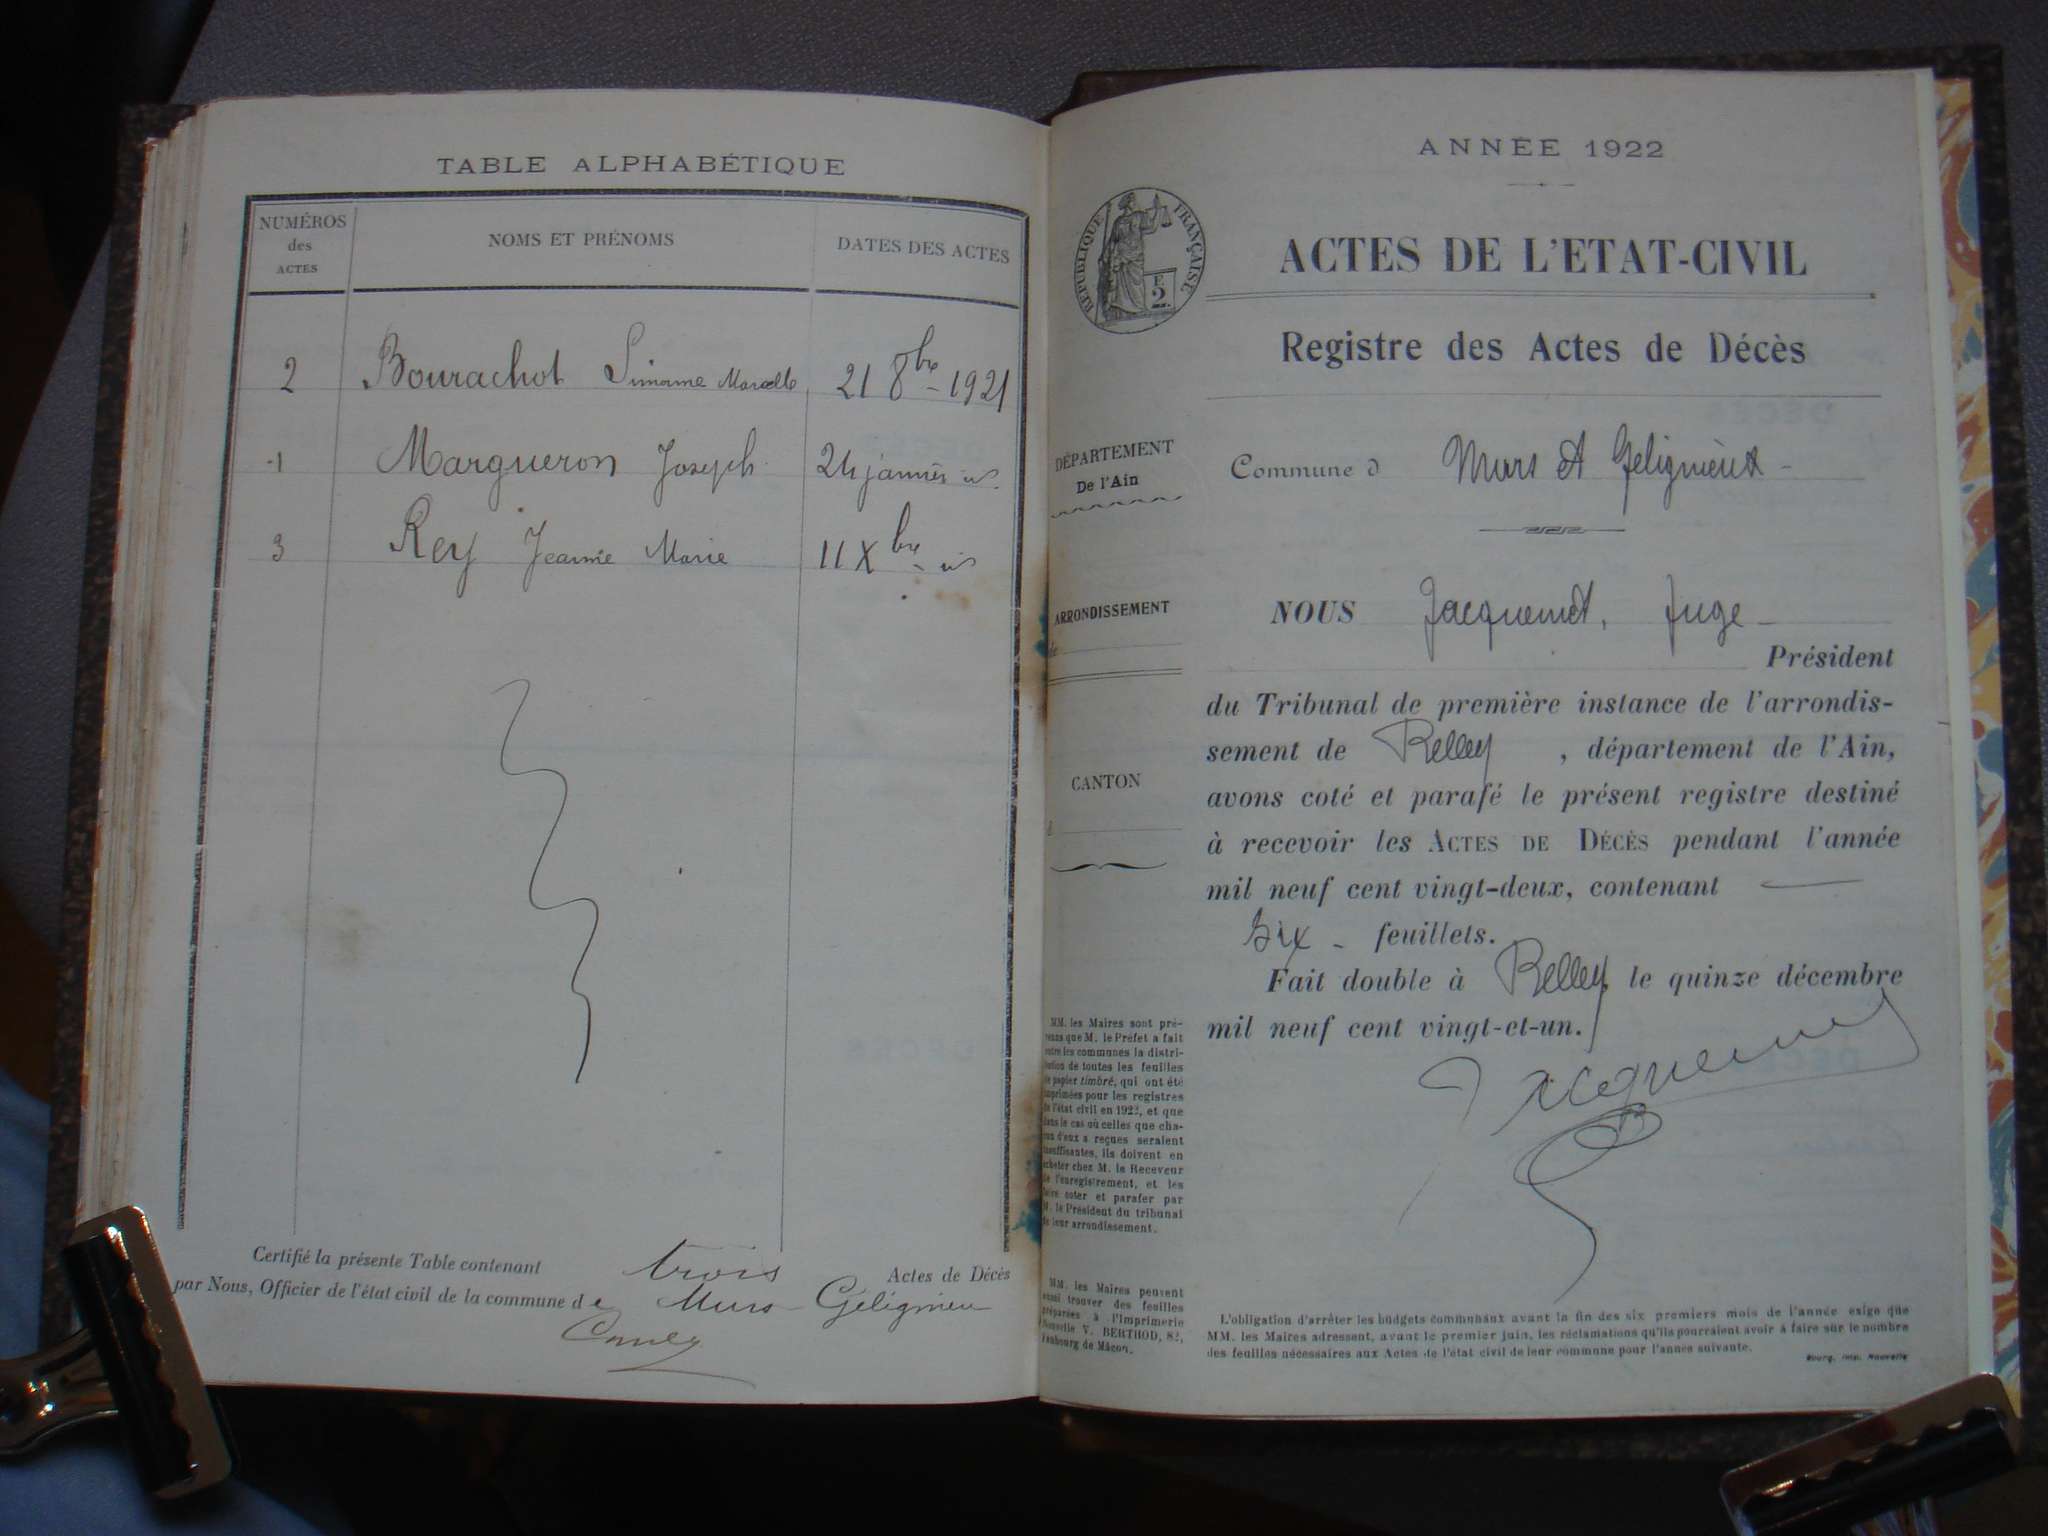 TABLE ALPHABÉTIQUE
NUMÉROS
des
ACTES
NOMS ET PRÉNOMS
DATES DES ACTES
2 Bourachot Simonne Marcelle 21 8bre 1921
1 Margueron Joseph 24 janvier
3 Rey Jeanne Marie 11 Xbre
Certifié la présente Table contenant trois Actes de Décès
par Nous, Officier de l'état civil de la commune de Murs Gélignieu
ANNÉE 1922
RÉPUBLIQUE FRANÇAISE
2
ACTES DE L'ETAT-CIVIL
Registre des Actes de Décès
DÉPARTEMENT
De l'Ain
Commune d Murs et Gélignieux
NOUS Jacquemet, Juge
ARRONDISSEMENT
de
Président
du Tribunal de première instance de l'arrondis-
sement de Belley , département de l'Ain,
CANTON
avons coté et parafé le présent registre destiné
à recevoir les ACTES DE DÉCÈS pendant l'année
mil neuf cent vingt-deux, contenant
Six feuillets.
Fait double à Belley, le quinze décembre
mil neuf cent vingt-et-un.
Jacquemet
MM. les Maires sont pré-
venus que M. le Préfet a fait
entre les communes la distri-
bution de toutes les feuilles
de papier timbré, qui ont été
imprimées pour les registres
de l'état civil en 1922, et que
dans le cas où celles que cha-
cun d'eux a reçues seraient
insuffisantes, ils doivent en
acheter chez M. le Receveur
de l'enregistrement, et les
faire coter et parafer par
M. le Président du tribunal
de leur arrondissement.
MM. les Maires peuvent
aussi trouver des feuilles
préparées à l'Imprimerie
Nouvelle V. BERTHOD, 82,
faubourg de Mâcon.
L'obligation d'arrêter les budgets communaux avant la fin des six premiers mois de l'année exige que
MM. les Maires adressent, avant le premier juin, les réclamations qu'ils pourraient avoir à faire sur le nombre
des feuilles nécessaires aux Actes de l'état civil de leur commune pour l'année suivante.
Bourg, Imp. Nouvelle